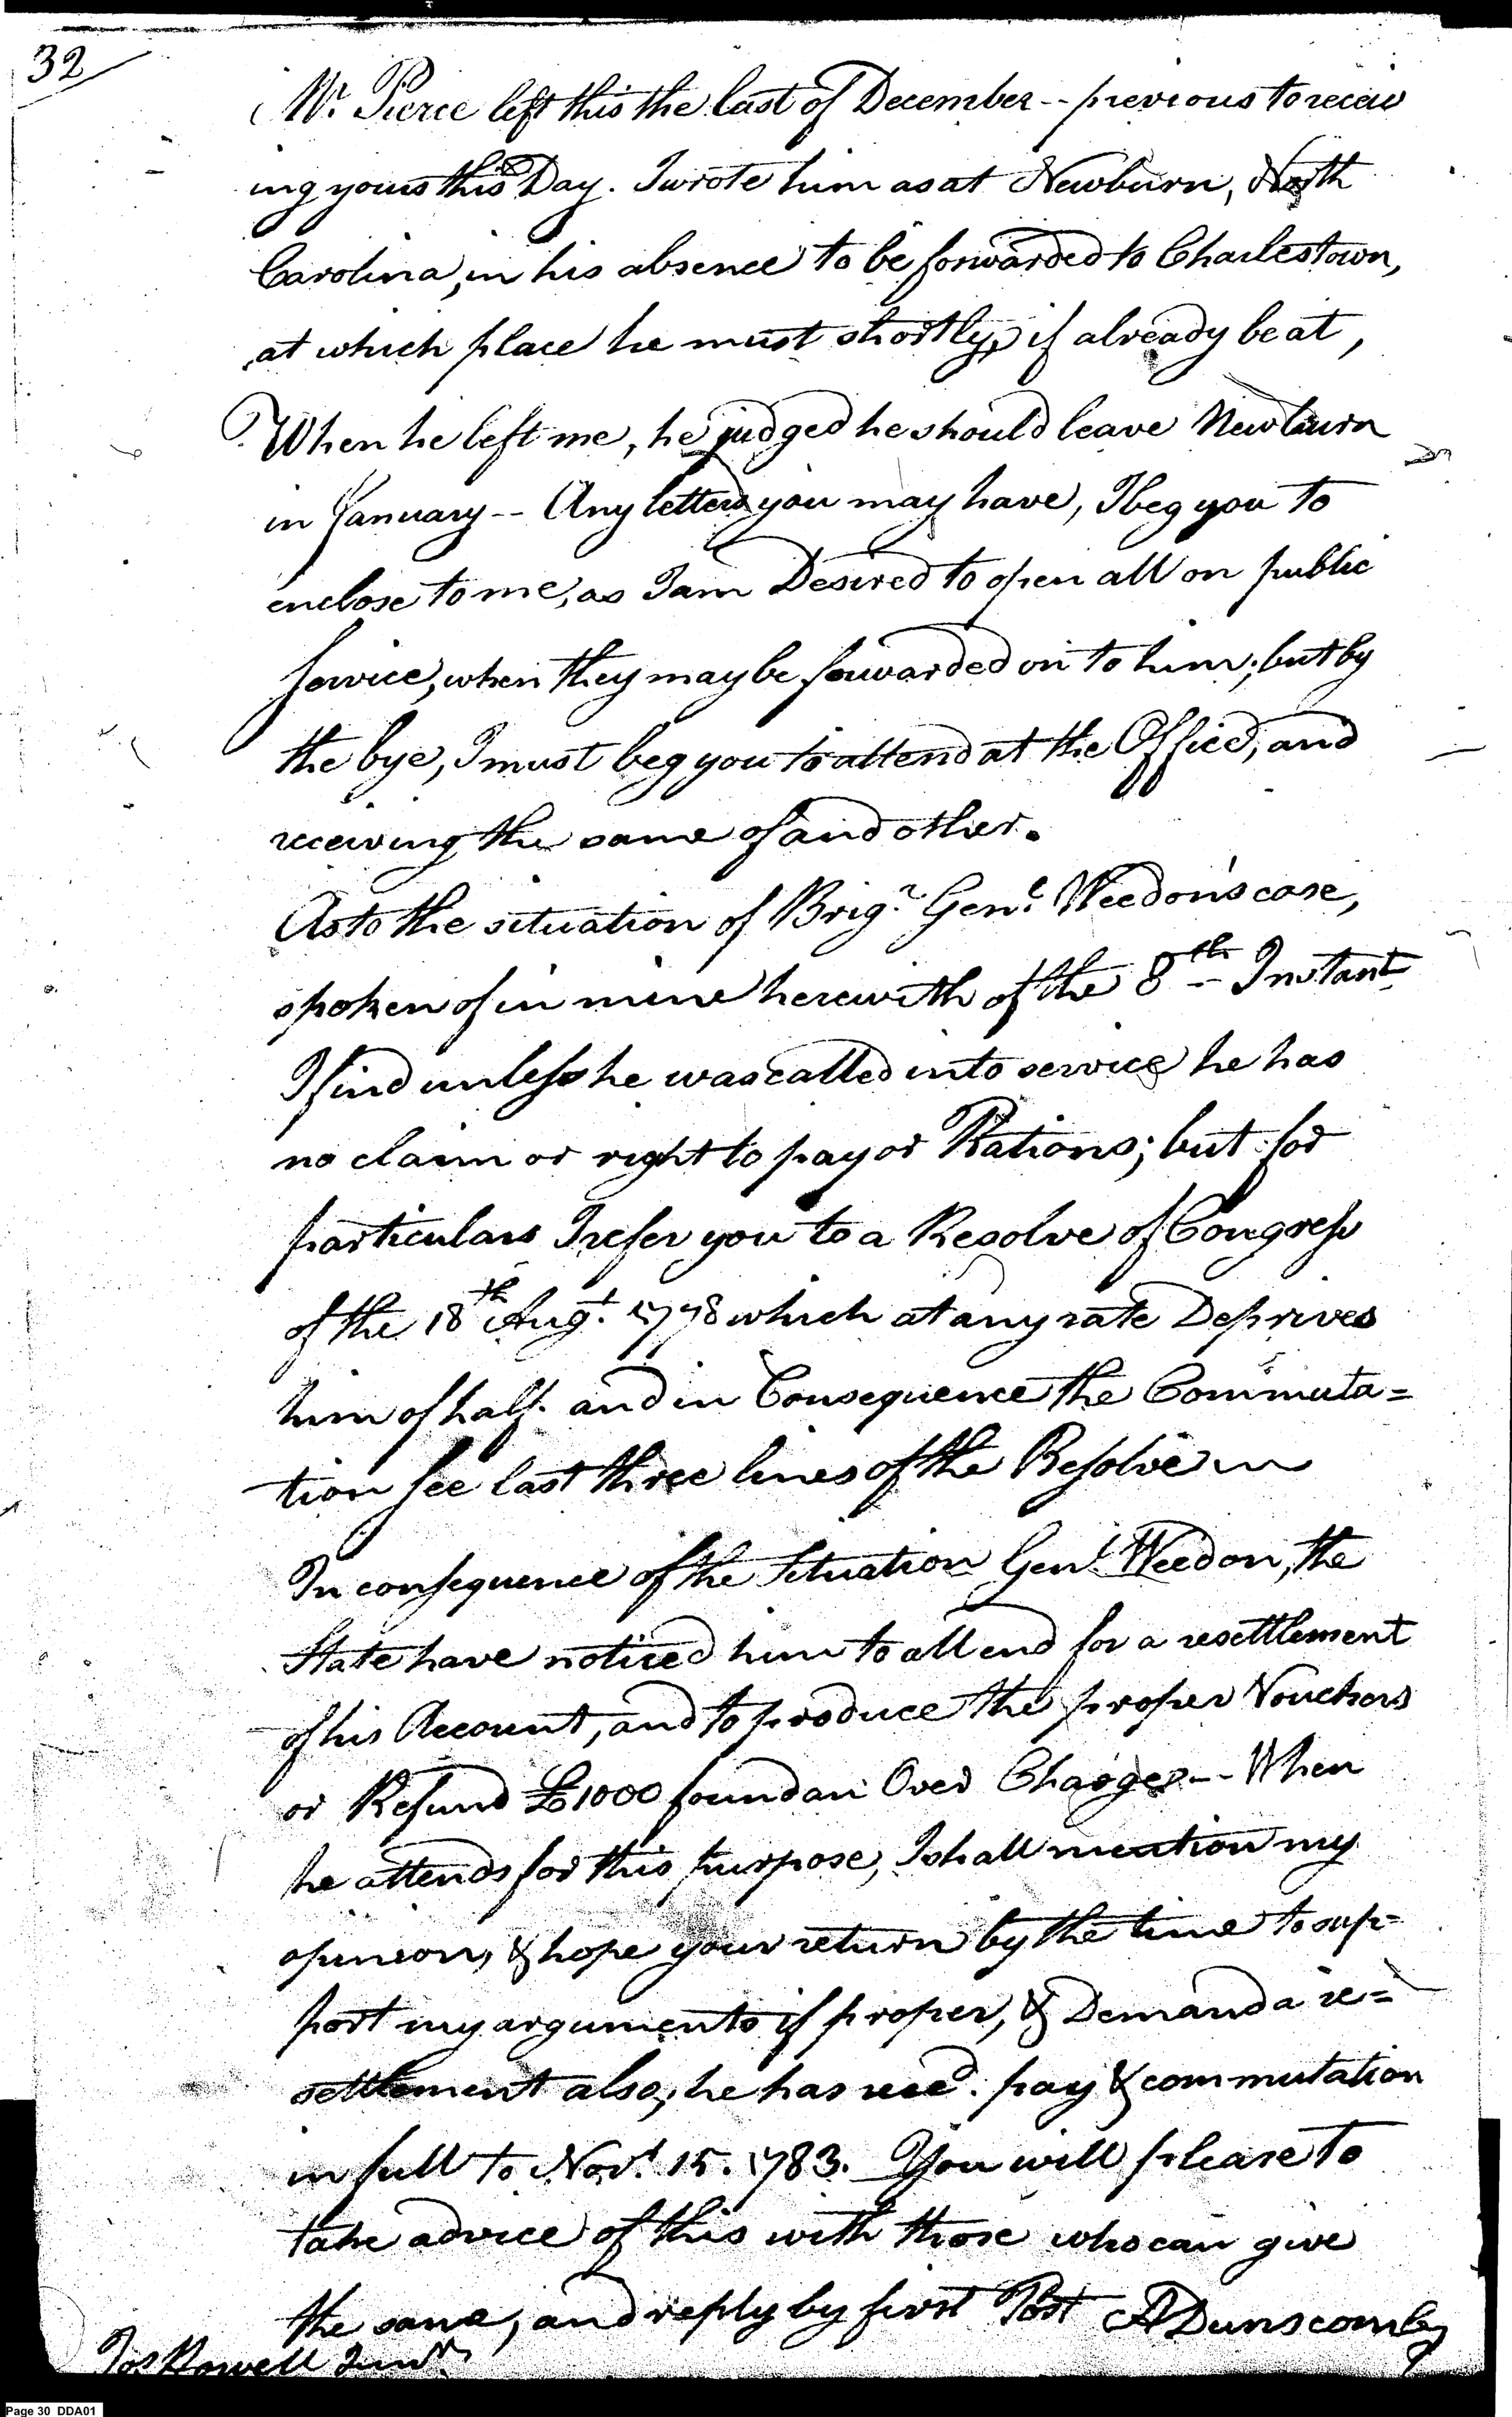 32
Mr. Pierce left this the last of December -- previous to receiv
ing yours this Day. I wrote him as at Newburn, North
Carolina, in his absence to be forwarded to Charlestown,
at which place he must shortly, if already be at,
When he left me, he judged he should leave Newburn
in January -- Any letters you may have, I beg you to
enclose to me, as I am Desired to open all on public
Service, when they may be forwarded on to him; but by
the bye, I must beg you to attend at the Office, and
receiving the same of and other.
As to the situation of Brigr. Genl. Weedon's case,
spoken of in mine herewith of the 8th Instant
I find unless he was called into service he has
no claim or right to pay or Rations; but for
particulars I refer you to a Resolve of Congress
of the 18th Augt. 1778 which at any rate Deprives
him of half. and in Consequence the Commuta=
tion See last three lines of the Resolve
In consequence of the Situation Genl. Weedon, the
State have noticed him to attend for a resettlement
of his Account, and to produce the proper Vouchers
or Refund £1000 found an Over Charge -- When
he attends for this purpose, I shall mention my
opinion, & hope your return by the time to sup=
port my arguments if proper, & Demand a re=
settlement also, he has recd. pay & commutation
in full to Novr. 15. 1783. You will please to
take advice of this with those who can give
the same, and reply by first Post A Dunscomb
Jos Howell Junr.
Page 30 DDA01